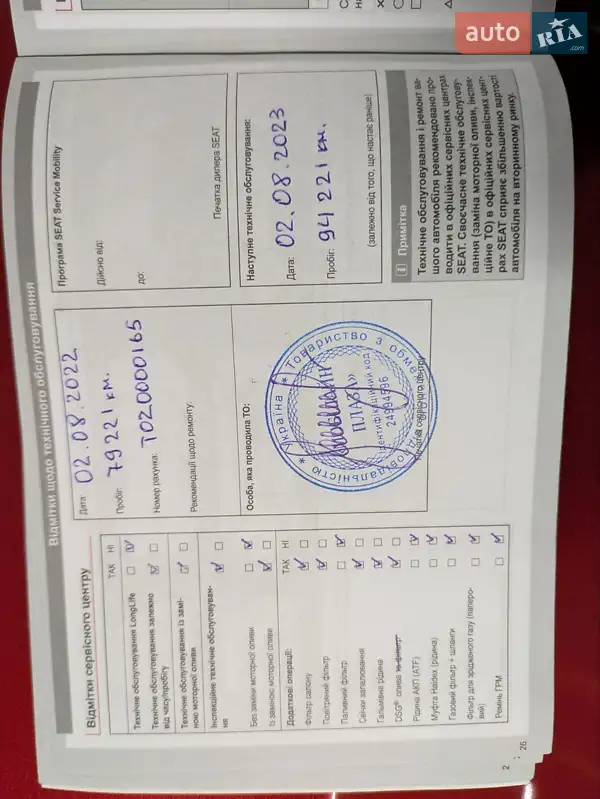 auto RIA .com
Відмітки щодо технічного обслуговування
Відмітки сервісного центру
ТАК НІ
Технічне обслуговування LongLife
Технічне обслуговування залежно
від часу/пробігу
Технічне обслуговування із замі-
ною моторної оливи
Інспекційне технічне обслуговуван-
ня
Без заміни моторної оливи
Із заміною моторної оливи
Додаткові операції: ТАК НІ
Фільтр салону
Повітряний фільтр
Паливний фільтр
Свічки запалювання
Гальмівна рідина
DSG® олива та фільтр
Рідина АКП (ATF)
Муфта Haldex (рідина)
Газовий фільтр + шланги
Фільтр для зрідженого газу (паперо-
вий)
Ремінь ГРМ
Дата: 02.08.2022
Пробіг: 79221 км.
Номер рахунка: ТО20000165
Рекомендації щодо ремонту:
Особа, яка проводила ТО:
Україна * Товариство з обме
відповідальністю *
ПЛАЗА»
ідентифікаційний код
24994596
Печатка сервісного центру
Програма SEAT Service Mobility
Дійсно від:
до:
Печатка дилера SEAT
Наступне технічне обслуговування:
Дата: 02.08.2023
Пробіг: 94221 км.
(залежно від того, що настає раніше)
i Примітка
Технічне обслуговування і ремонт ва-
шого автомобіля рекомендовано про-
водити в офіційних сервісних центрах
SEAT. Своєчасне технічне обслугову-
вання (заміна моторної оливи, інспек-
ційне ТО) в офіційних сервісних цент-
рах SEAT сприяє збільшенню вартості
автомобіля на вторинному ринку.
26